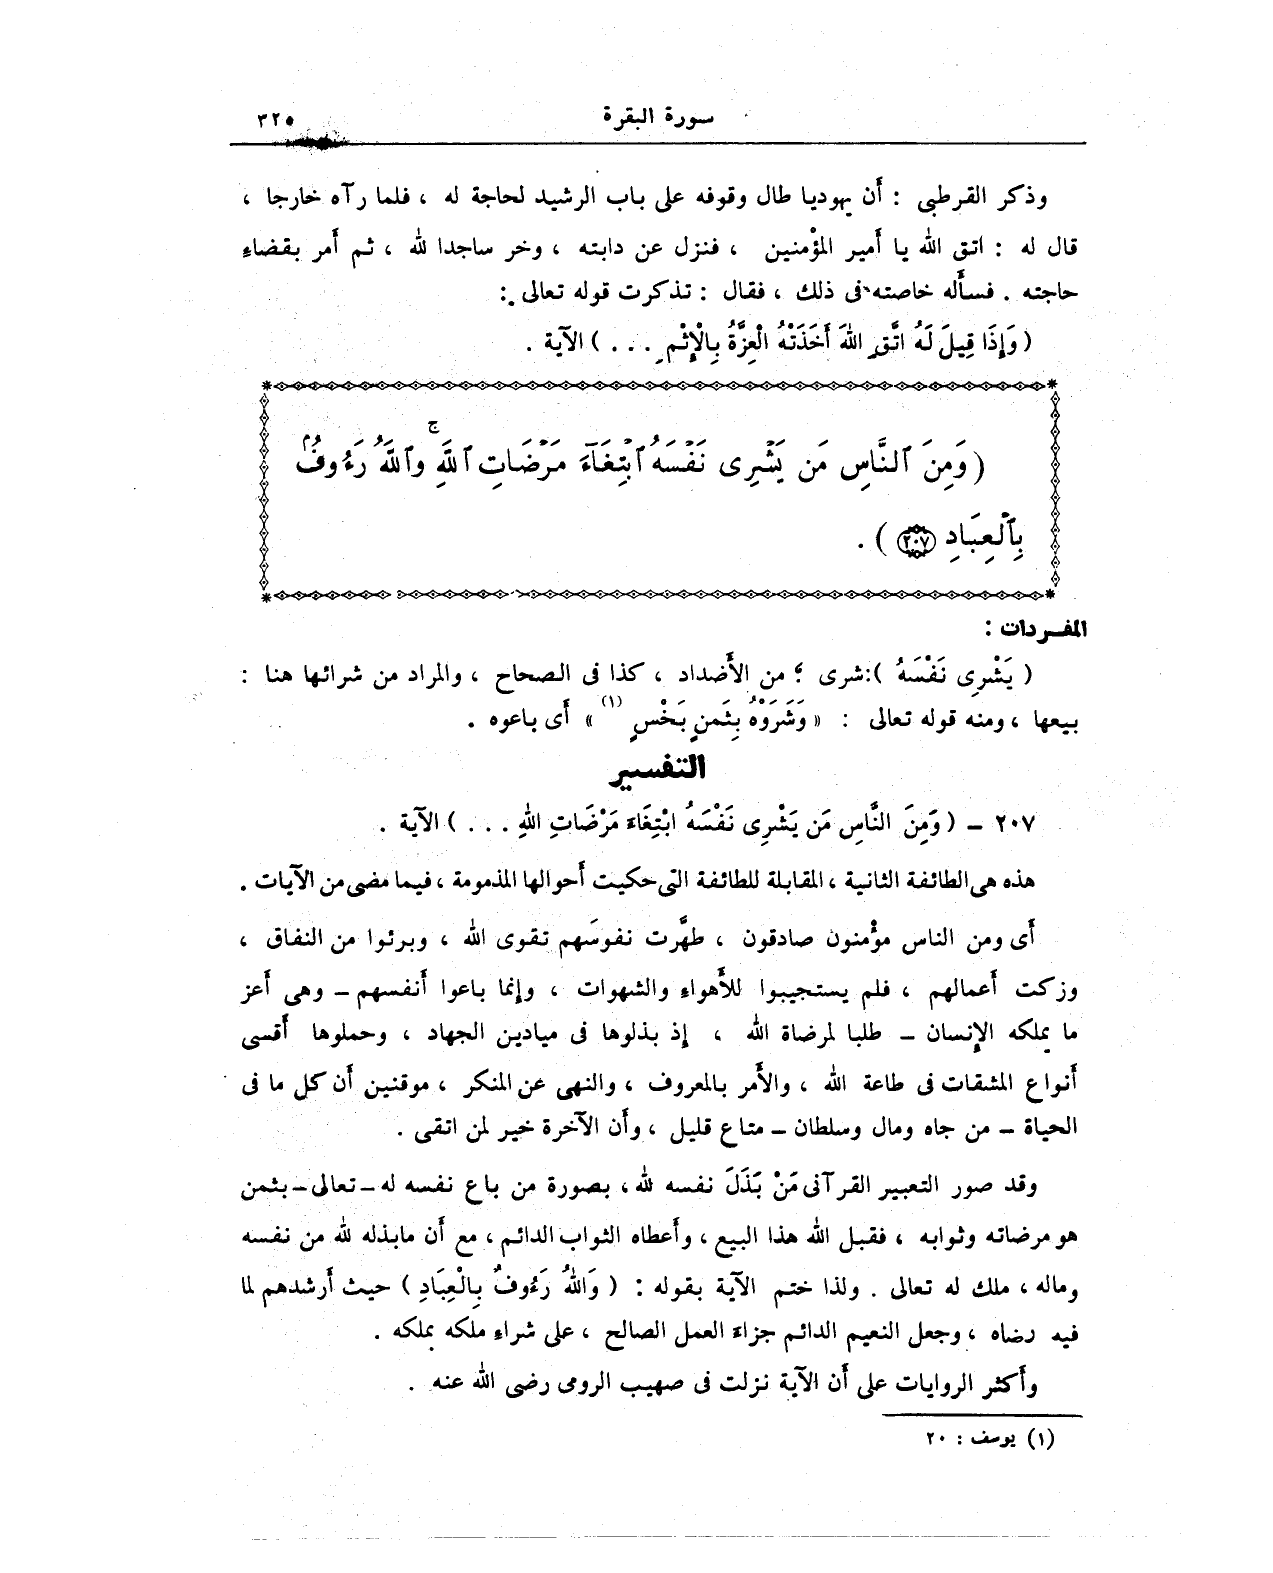 سورة البقرة ٣٢٥
وذكر القرطبى : أَن يهوديا طال وقوفه على باب الرشيد لحاجة له ، فلما رآه خارجا ،
قال له : اتق الله يا أَمير المؤْمنين ، فنزل عن دابته ، وخر ساجدا لله ، ثم أَمر بقضاءِ
حاجته . فسأَله خاصته فى ذلك ، فقال : تذكرت قوله تعالى :
( وَإِذَا قِيلَ لَهُ اتَّقِ اللهَ أَخَذَتْهُ الْعِزَّةُ بِالْإِثْمِ . . . ) الآية .
( وَمِنَ ٱلنَّاسِ مَن يَشْرِى نَفْسَهُ ٱبْتِغَآءَ مَرْضَاتِ ٱللَّهِ ۚ وَٱللَّهُ رَءُوفٌۢ
بِٱلْعِبَادِ ٢٠٧ ) .
المفـردات :
( يَشْرِى نَفْسَهُ ): شرى ؛ من الأَضداد ، كذا فى الصحاح ، والمراد من شرائها هنا :
بيعها ، ومنه قوله تعالى : « وَشَرَوْهُ بِثَمنٍ بَخْسٍ (١) » أَى باعوه .
التفسير
٢٠٧ – ( وَمِنَ النَّاسِ مَن يَشْرِى نَفْسَهُ ابْتِغَاءَ مَرْضَاتِ اللهِ . . . ) الآية .
هذه هى الطائفة الثانية ، المقابلة للطائفة التى حكيت أَحوالها المذمومة ، فيما مضى من الآيات .
أَى ومن الناس مؤْمنون صادقون ، طهَّرت نفوسَهم تقوى الله ، وبرئوا من النفاق ،
وزكت أَعمالهم ، فلم يستجيبوا للأَهواءِ والشهوات ، وإنما باعوا أَنفسهم – وهى أَعز
ما يملكه الإِنسان – طلبا لمرضاة الله ، إِذ بذلوها فى ميادين الجهاد ، وحملوها أَقسى
أَنواع المشقات فى طاعة الله ، والأَمر بالمعروف ، والنهى عن المنكر ، موقنين أَن كل ما فى
الحياة – من جاه ومال وسلطان – متاع قليل ، وأَن الآخرة خير لمن اتقى .
وقد صور التعبير القرآنى مَنْ بَذَلَ نفسه لله ، بصورة من باع نفسه له – تعالى – بثمن
هو مرضاته وثوابه ، فقبل الله هذا البيع ، وأَعطاه الثواب الدائم ، مع أَن مابذله لله من نفسه
وماله ، ملك له تعالى . ولذا ختم الآية بقوله : ( وَاللهُ رَءُوفٌ بِالْعِبَادِ ) حيث أَرشدهم لما
فيه رضاه ، وجعل النعيم الدائم جزاءَ العمل الصالح ، على شراءِ ملكه بملكه .
وأَكثر الروايات على أَن الآية نزلت فى صهيب الرومى رضى الله عنه .
(١) يوسف : ٢٠